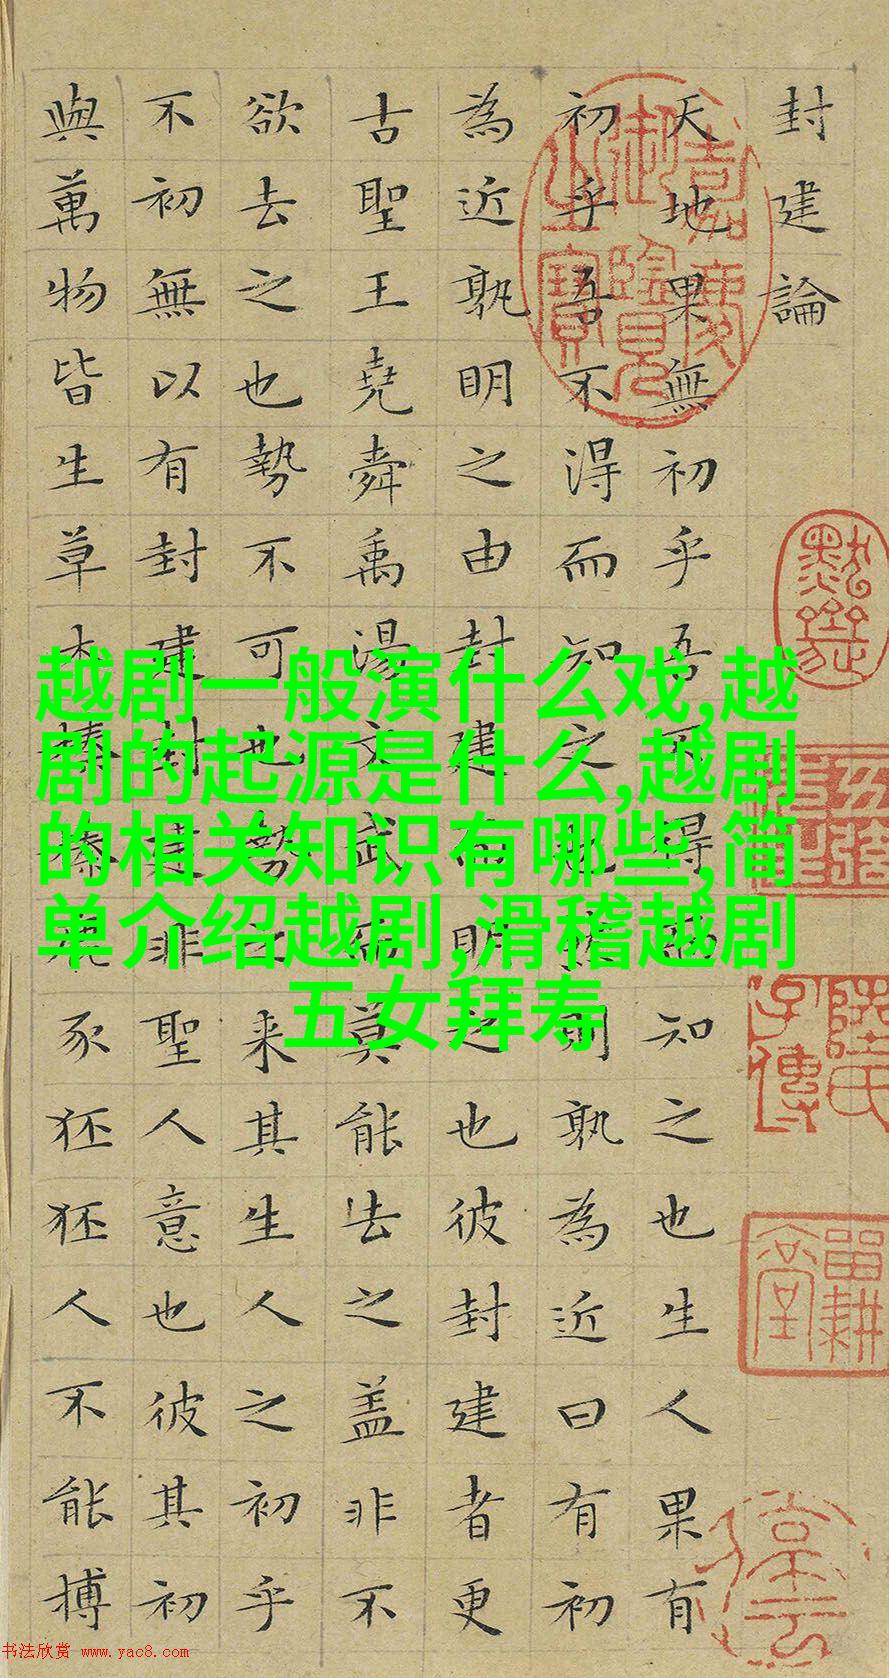 封建論
天地果無初乎吾不得而知之也生人果有
初乎吾不得而知之也然則孰為近曰有初
為近孰明之由封建而明之也彼封建者更
古聖王堯舜禹湯文武而莫能去之盖非不
欲去之也勢不可也勢之来其生人之初乎
不初無以有封建封建非聖人意也彼其初
與萬物皆生草木榛榛鹿豕狉狉人不能搏
嘉慶御覽之寶
越剧一般演什么戏,越
剧的起源是什么,越剧
的相关知识有哪些,简
单介绍越剧,滑稽越剧
五女拜寿
书法欣赏 www.yac8.com